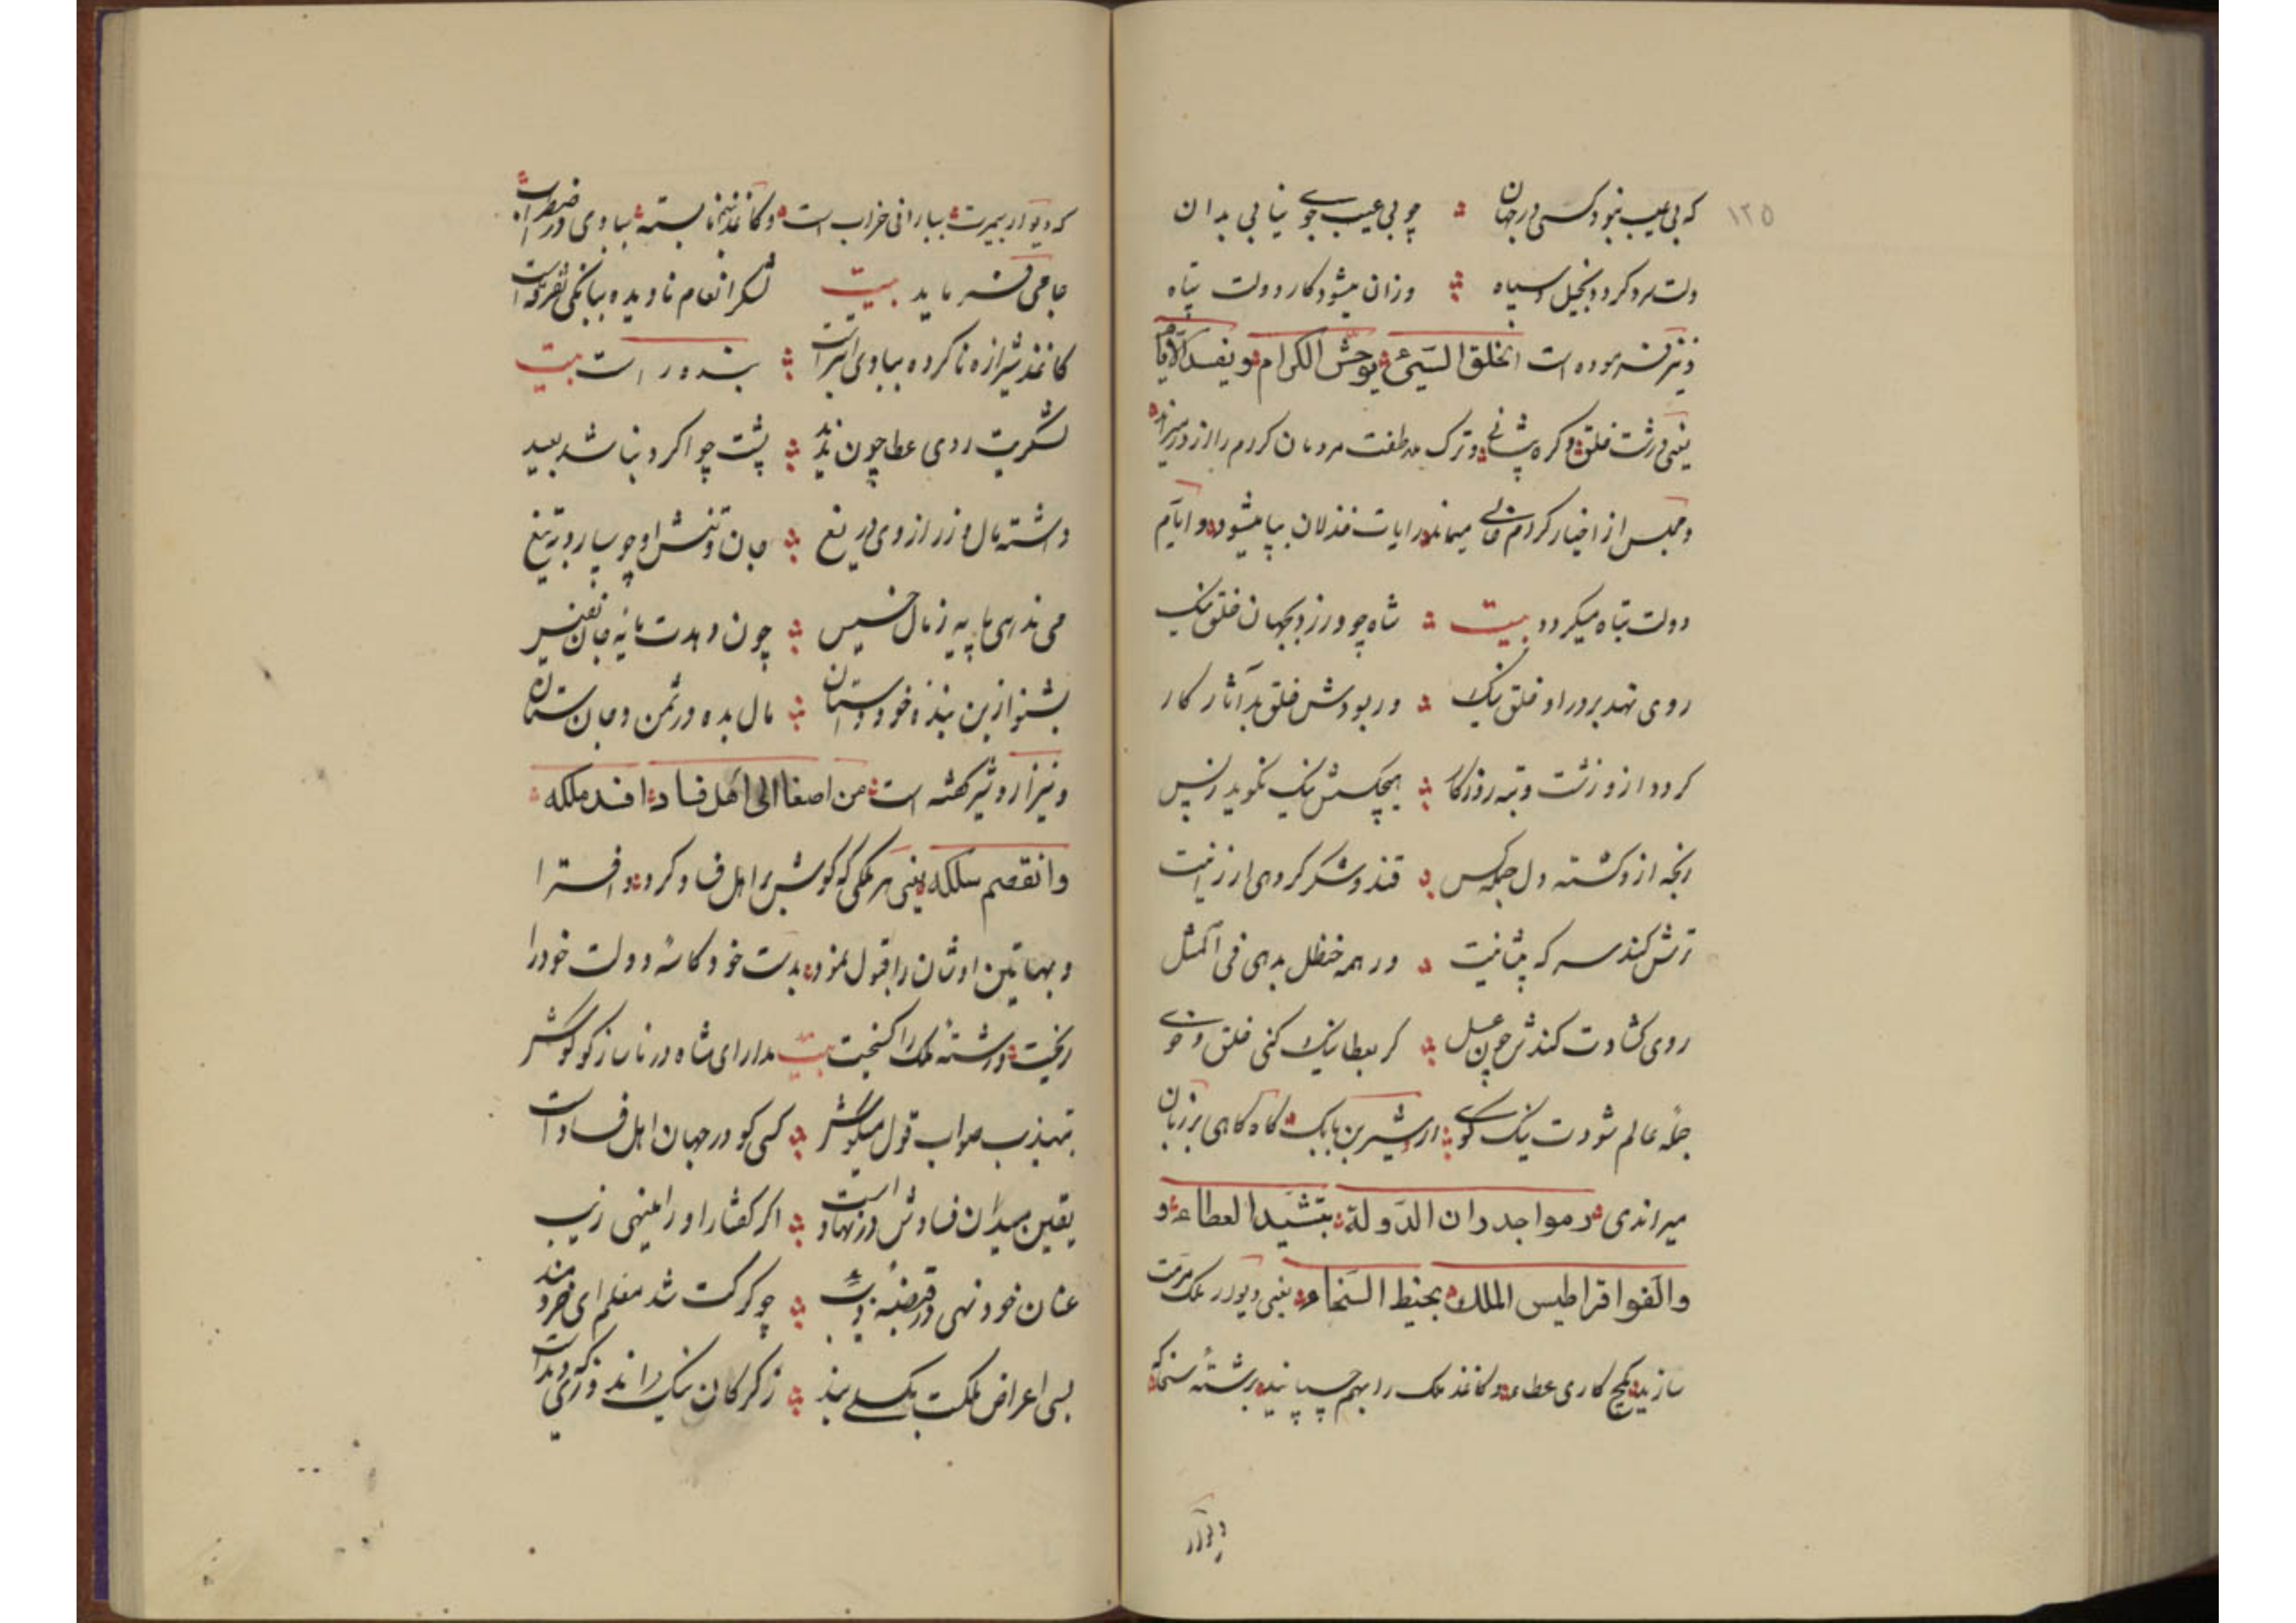 ۱۲۵
که بی عیب نبود کسی در جهان چو بی عیب جویی نیابی بدان
دلت سرد کردد بخیل و سیاه وزان میشود کار دولت تباه
و نیز فرموده است الخلق السّیئ یوحش الکرام و یفسد الایام
یعنی درشت خلق و کره پیشانی و ترک ملاطفت مردمان کردم را از در میراند
و مجلس از اخیار کردم خالی میماند و رایات خذلان بپا میشود و ایام
دولت تباه میکردد بیت شاه چو ورزد بجهان خلق نیک
روی نهد بردر او خلق نیک ور بودش خلق بد آثار کار
کردد ازو زشت و تبه روزکار هیچکسش نیک نکوید زپس
رنجه ازو کشته دل جمله کس قند و شکر کردهی ارزانیت
ترش کند سرکه پیشانیت ور همه حنظل بدهی فی المثل
روی کشادت کندش چون عسل کر بعطا نیک کنی خلق و خوی
جمله عالم شودت نیک کوی اردشیر بن بابک کاه کاهی بر زبان
میراندی رموا جدران الدّولة بتشیید العطاء و
والفوا قراطیس الملک بخیط السّخاء یعنی دیوار ملک مرمت
سازید بکچ کاری عطا و کاغذ ملک را بهم چسپانید برشتهٔ سخا که
دیوار
که دیوار بیمرمت بارانی خراب است و کاغذ نابسته ببادی در اضطراب
جامی فرماید بیت لشکر انعام نادیده ببانکی تفرقه است
کاغذ شیرازه ناکرده ببادی ابتر است بنده راست بیت
لشکریت روی عطا چون ندید پشت چو اکرد نباشد بعید
داشته مال و زر از وی دریغ جان و تنش او چو سپارد بتیغ
می ندهی مایه ز مال خسیس چون دهدت مایهٔ جان نفیس
بشنو ازین بنده خود داستان مال بده دشمن و جان ستان
و نیز اردشیر کفته است من اصغا الی اهل فساد افسد ملکه
وانفصم سلکه یعنی هر ملکی که کوش بر اهل فساد کرد و افترا
و بهتان اوشان را قبول نمود بدست خود کاسهٔ دولت خود را
ریخت و رشتهٔ ملک را کسیخت بیت مدار ای شاه در ناساز کو کوش
بتهذیب صواب قول میکوش کسی کو در جهان اهل فساد است
یقین میدان فسادش در نهاد است اکر کفتار او را مینهی زیب
عنان خود نهی در قبضهٔ چو کرکت شد معلم ای خردمند
بسی اعراض ملکت بکسلی بند ز کرکان نیک راند